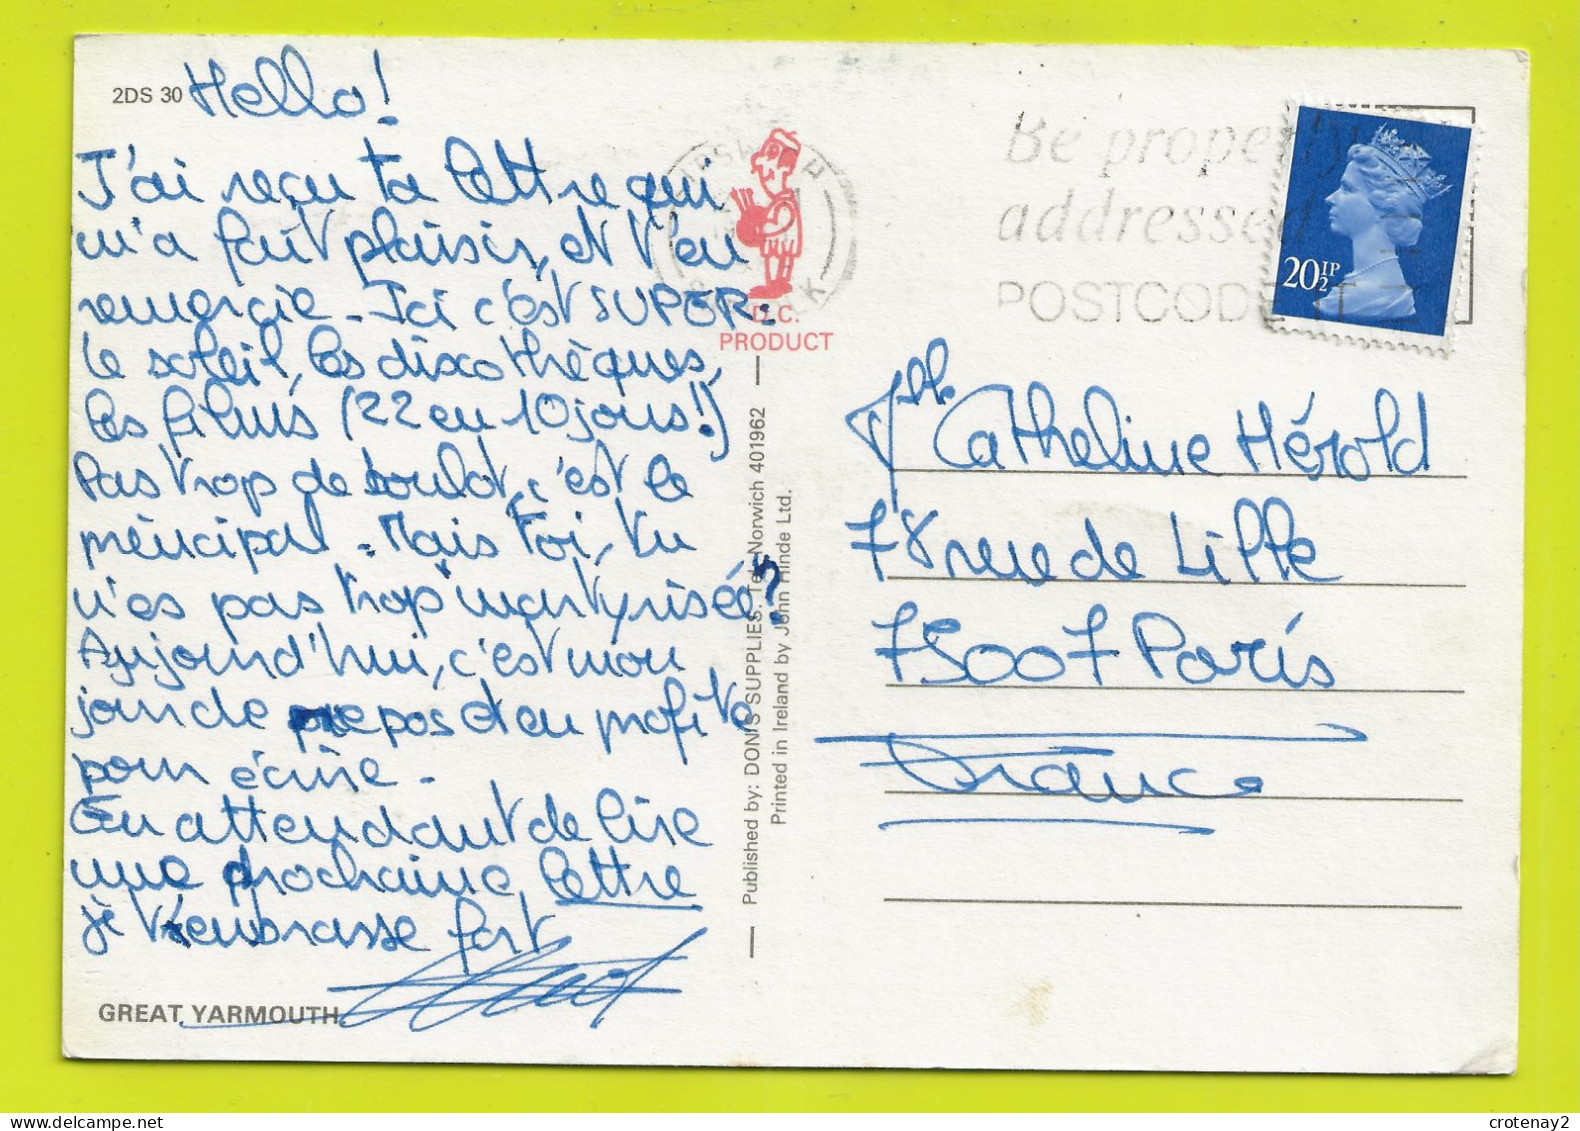 2DS 30 Hello!
J'ai reçu ta lettre qui
m'a fait plaisir, et t'en
remercie. Ici c'est SUPER:
le soleil, les discothèques,
les films (22 en 10 jours!)
Pas trop de boulot, c'est le
principal. Mais toi, tu
n'es pas trop martyrisée?
Aujourd'hui, c'est mon
jour de repos et en profite
pour écrire.
En attendant de lire
une prochaine lettre
je t'embrasse fort
GREAT YARMOUTH
D.C.
PRODUCT
Published by: DONIS SUPPLIES. Tel: Norwich 401962
Printed in Ireland by John Hinde Ltd.
Be properly
addressed
POSTCODE IT
20½P
Mlle Catheline Hérold
78 rue de Lille
75007 Paris
France
crotenay2